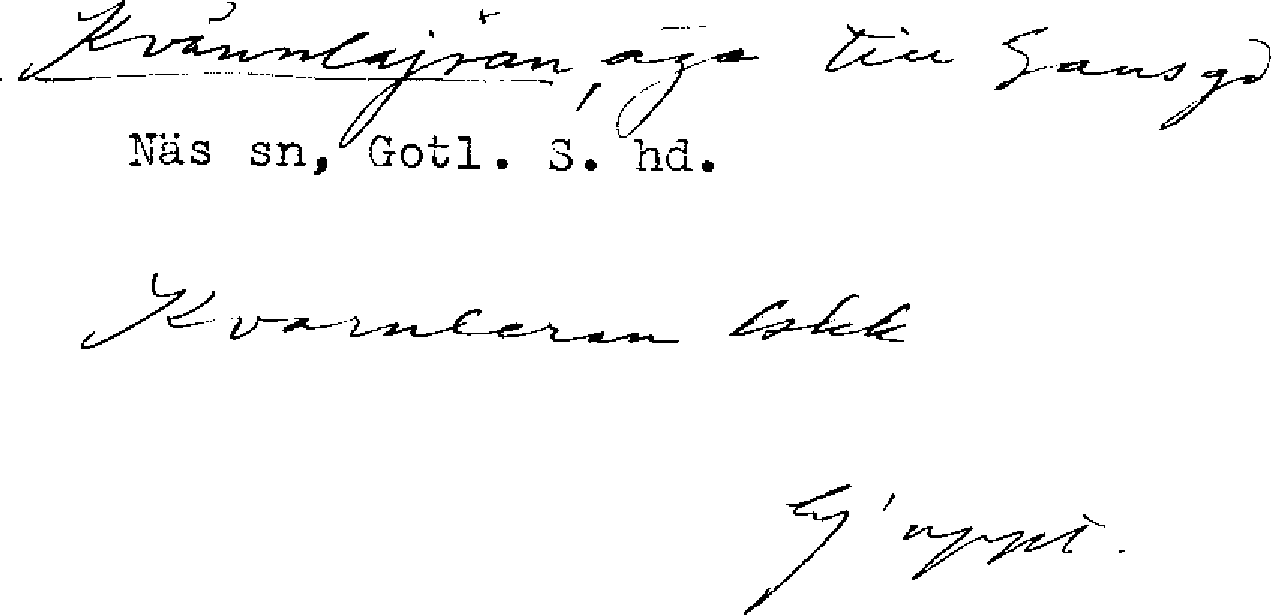 Kvännlajran, äga till Gansgd
Näs sn, Gotl. S. hd.
Kvarnleran lskk
Ej uppt.